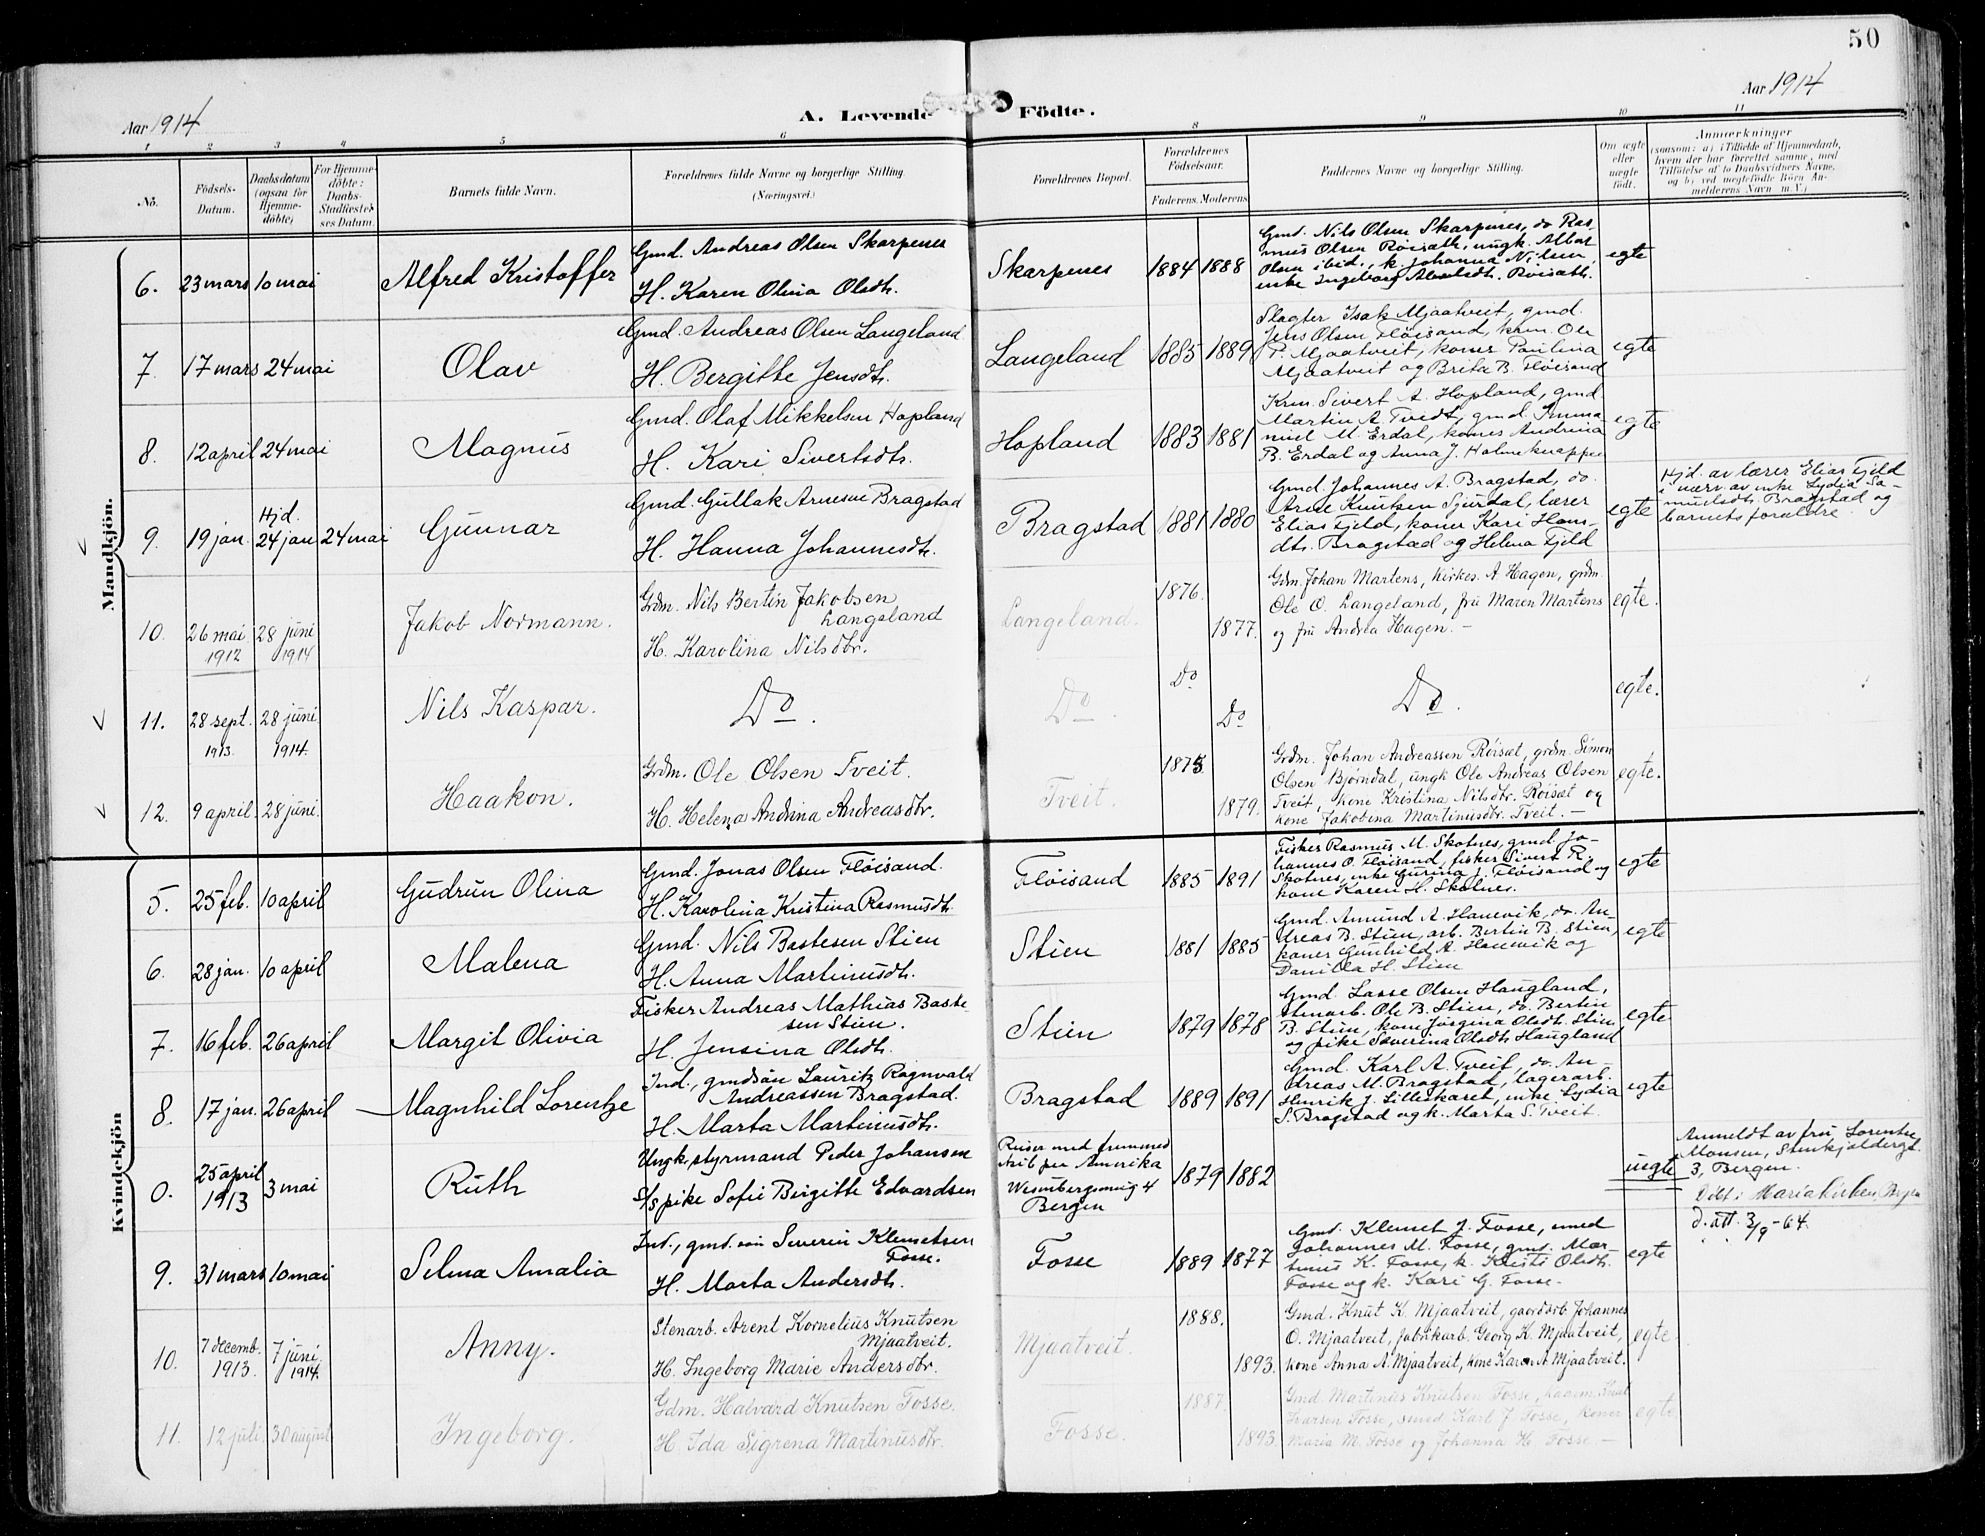 50
Aar 1914
A. Levende Födte.
Aar 1914
1 2 3 4 5 6 8 9 10 11
No.
Födsels-Datum.
Daabsdatum (ogsaa for Hjemmedöbte)
For Hjemmedöbte: Daabs-Stadfæstelses Datum.
Barnets fulde Navn.
Forældrenes fulde Navne og borgerlige Stilling.
(Næringsvei.)
Forældrenes Bopæl.
Forældrenes Födselsaar.
Faderens. Moderens.
Faddernes Navne og borgerlige Stilling.
Om ægte eller uægte födt.
Anmærkninger
(saasom: a) i Tilfælde af Hjemmedaab,
hvem der har forrettet samme, med
Tilföielse af to Daabsvidners Navne,
og b) ved uegtefödte Börn An-
melderens Navn m. V.)
Mandkjön.
6. 23 mars 10 mai Alfred Kristoffer
Gmd. Andreas Olsen Skarpenes
H. Karen Olina Olsdtr.
Skarpenes 1884 1888
Gmd. Nils Olsen Skarpenes, do Ras-
mus Olsen Røisæth, ungk. Albar
Olsen ibid., k. Johanna Nilsen,
enke Ingeborg Røisæth.
egte
7. 17 mars 24 mai Olav
Gmd. Andreas Olsen Langeland
H. Bergitte Jensdtr.
Langeland 1885 1889
Slagter Isak Mjaatveit, gmd.
Jens Olsen Fløisand, krm. Ole
P. Mjaatveit, koner Paulina
Mjaatveit og Brita B. Fløisand
egte
8. 12 april 24 mai Magnus
Gmd. Olaf Mikkelsen Hopland
H. Kari Sivertsdtr.
Hopland 1883 1881
Krm. Sivert A. Hopland, gmd.
Martin A. Tvedt, gmd. Imma
nuel M. Erdal, koner Andrina
B. Erdal og Anna J. Holmeknappen
egte
9. 19 jan. Hjd. 24 jan 24 mai Gunnar
Gmd. Gullak Arnesen Bragstad
H. Hanna Johannesdtr.
Bragstad 1881 1880
Gmd. Johannes A. Bragstad, do.
Arne Knutsen Sjurdal, lærer
Elias Fjeld, koner Kari Hans-
dtr. Bragstad og Helena Fjeld
egte
Hjd. av lærer Elias Fjeld
i nærv. av enke Lydia Sa-
muelsdtr Bragstad og
barnets forældre.
10. 26 mai 1912 28 juni 1914 Jakob Normann.
Grdm. Nils Bertin Jakobsen
Langeland
H. Karolina Nilsdtr.
Langeland. 1876. 1877.
Grdm. Johan Martens, kirkes. A. Hagen, grdm.
Ole O. Langeland, fru Maren Martens
og fru Andrea Hagen. –
egte.
11. 28 sept. 1913. 28 juni 1914. Nils Kaspar.
Do. Do. Do Do Do. egte.
12. 9 april. 28 juni. Haakon.
Grdm. Ole Olsen Tveit.
H. Helena Andrina Andreasdtr.
Tveit. 1875. 1879.
Grdm. Johan Andreassen Røisæt, grdm. Simon
Olsen Bjørndal, ungk Ole Andreas Olsen
Tveit, kone Kristina Nilsdtr. Røisæt og
kone Jakobina Martinusdtr. Tveit. –
egte.
Kvindekjön
5. 25 feb. 10 april Gudrun Olina
Gmd. Jonas Olsen Fløisand.
H. Karolina Kristina Rasmusdtr.
Fløisand 1885 1891
Fisker Rasmus M. Skotnes, gmd. Jo-
hannes O. Fløisand, fisker Sivert R.
Skotnes, enke Gurina J. Fløisand og
kone Karen H. Skotnes.
egte
6. 28 jan. 10 april Malena
Gmd. Nils Bastesen Stien
H. Anna Martinusdtr.
Stien 1881 1885
Gmd. Amund A. Hanevik, do. An-
dreas B. Stien, arb. Bertin B. Stien,
koner Gunhild A. Hanevik og
H. Stien
egte
7. 16 feb. 26 april Margit Olivia
Fisker Andreas Mathias Baste
sen Stien.
H. Jensina Olsdtr.
Stien 1879 1878
Gmd. Lasse Olsen Haugland,
stenarb. Ole B. Stien, do. Bertin
B. Stien, kone Jørgina Olsdtr. Stien
og pike Severina Olsdtr. Haugland
egte
8. 17 jan. 26 april Magnhild Lorentze
Ind., gmdsøn Lauritz Ragnvald
Andreassen Bragstad.
H. Marta Martinusdtr.
Bragstad 1889 1891
Gmd. Karl A. Tveit, do. An-
dreas M. Bragstad, lagerarb.
Henrik J. Lilleskaret, enke Lydia
S. Bragstad og k. Marta S. Tveit.
egte
0. 25 april 1913 3 mai Ruth
Ungk. styrmand Peder Johansen
pike Sofie Birgitte Edvardsen
Reiser med fremmed
skib paa Amerika
4
Bergen
1879 1882
uegte
Anmeldt av fru Lorentze
Monsen, Stenkjeldergt.
3, Bergen.
Døbt i Mariakirken Bergen
d. att. 3/9-64.
9. 31 mars 10 mai Selma Amalia
Ind., gmd. søn Severin Klemetsen
Fosse.
H. Marta Andersdtr.
Fosse 1889 1877
Gmd. Klemet J. Fosse, smed
Johannes M. Fosse, gmd. Mar-
tinus K. Fosse, k. Kristi Olsdtr.
Fosse og k. Kari G. Fosse.
egte
10. 7 decemb. 1913. 7 juni 1914. Anny.
Stenarb. Arent Kornelius Knutsen
Mjaatveit.
H. Ingeborg Marie Andersdtr.
Mjaatveit. 1888. 1893.
Gmd. Knut K. Mjaatveit, gaardarb. Johannes
O. Mjaatveit, fabrikarb. Georg K. Mjaatveit,
kone Anna A. Mjaatveit, kone Karen A. Mjaatveit.
egte.
11. 12 juli. 30 august Ingeborg.
Gdm. Halvard Knutsen Fosse.
H. Ida Sigrena Martinusdtr.
Fosse. 1887. 1893.
Gmd. Martinus Knutsen Fosse, Knut
Ivarsen Fosse, smed Karl J. Fosse, koner
Maria M. Fosse og Johanna H. Fosse. –
egte